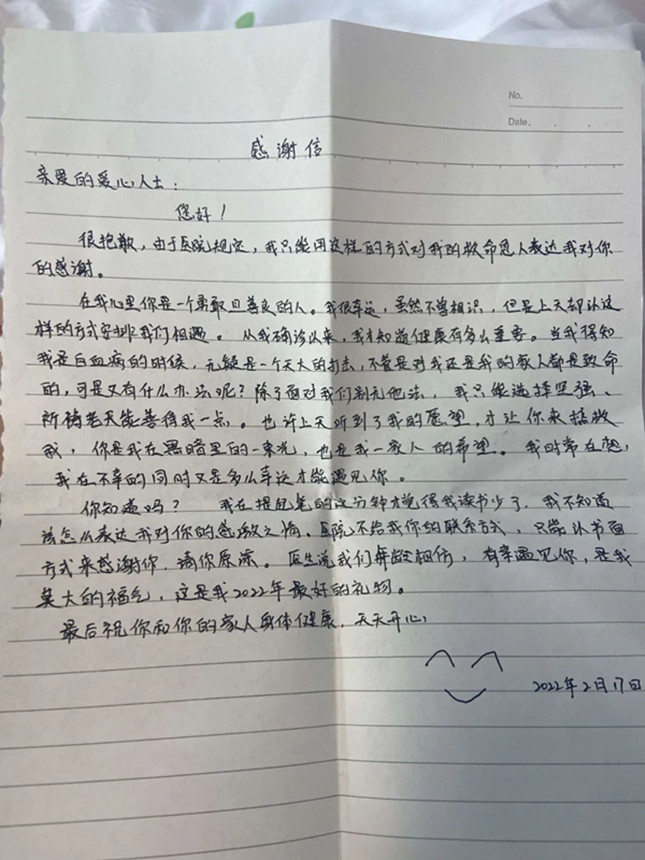 No.
Date.
感谢信
亲爱的爱心人士：
您好！
很抱歉，由于医院规定，我只能用这样的方式对我的救命恩人表达我对你
的感谢。
在我心里你是一个勇敢且善良的人。我很幸运，虽然不曾相识，但是上天却以这
样的方式安排我们相遇。从我确诊以来，我才知道健康有多么重要。当我得知
我是白血病的时候，无疑是一个天大的打击，不管是对我还是我的家人都是致命
的，可是又有什么办法呢？除了面对我们别无他法，我只能选择坚强、
祈祷老天能善待我一点。也许上天听到了我的愿望，才让你来拯救
我，你是我在黑暗里的一束光，也是我一家人的希望。我时常在想，
我在不幸的同时又是多么幸运才能遇见你。
你知道吗？我在提起笔的这分钟才觉得我读书少了，我不知道
该怎么表达我对你的感激之情。医院不给我你的联系方式，只能以书面
方式来感谢你，请你原谅。医生说我们年龄相仿，有幸遇见你，是我
莫大的福气，这是我2022年最好的礼物。
最后祝你和你的家人身体健康，天天开心，
2022年2月17日